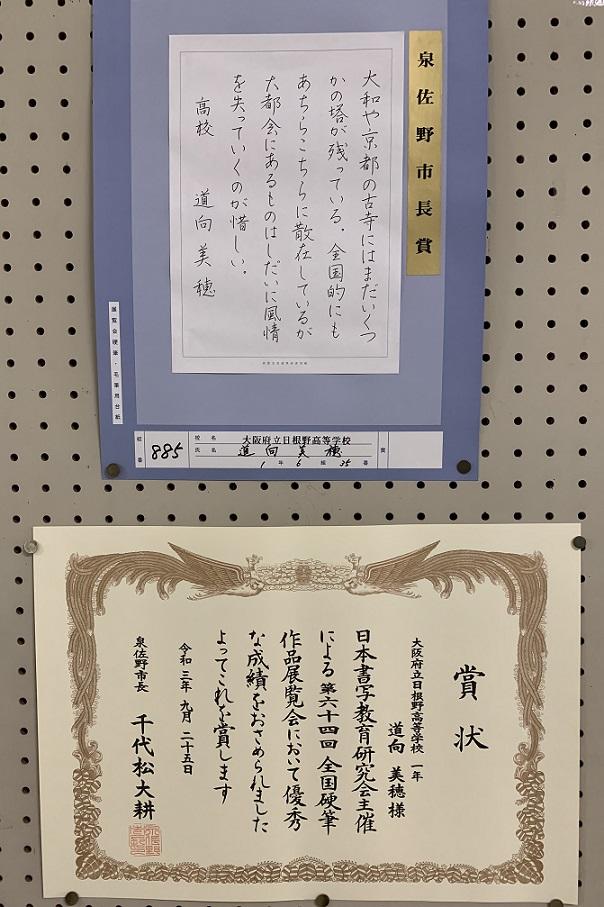 泉佐野市長賞
大和や京都の古寺にはまだいくつ
かの塔が残っている。全国的にも
あちらこちらに散在しているが
大都会にあるものはしだいに風情
を失っていくのが惜しい。
高校 道向美穂
展覧会硬筆・毛筆用台紙
885
校名 大阪府立日根野高等学校
氏名 道向美穂
1年6組35番
賞
賞状
大阪府立日根野高等学校 一年
道向美穂様
日本書写教育研究会主催
による第六十四回全国硬筆
作品展覧会において優秀
な成績をおさめられました
よってこれを賞します
令和三年九月二十五日
泉佐野市長 千代松大耕